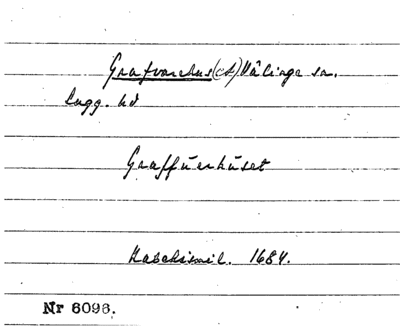 Grafvarehus (A) Välinge sn.
Lugg. hd
Graffüerhüset
1684.
Nr 6096.